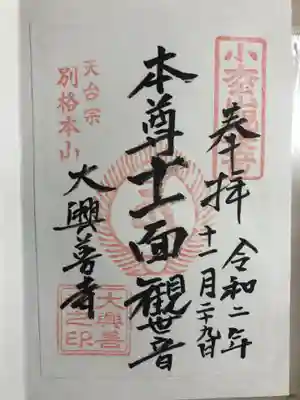 奉拝
令和二年
十一月二十九日
本尊十一面觀世音
天台宗
別格本山
大興善寺
大興善
之印